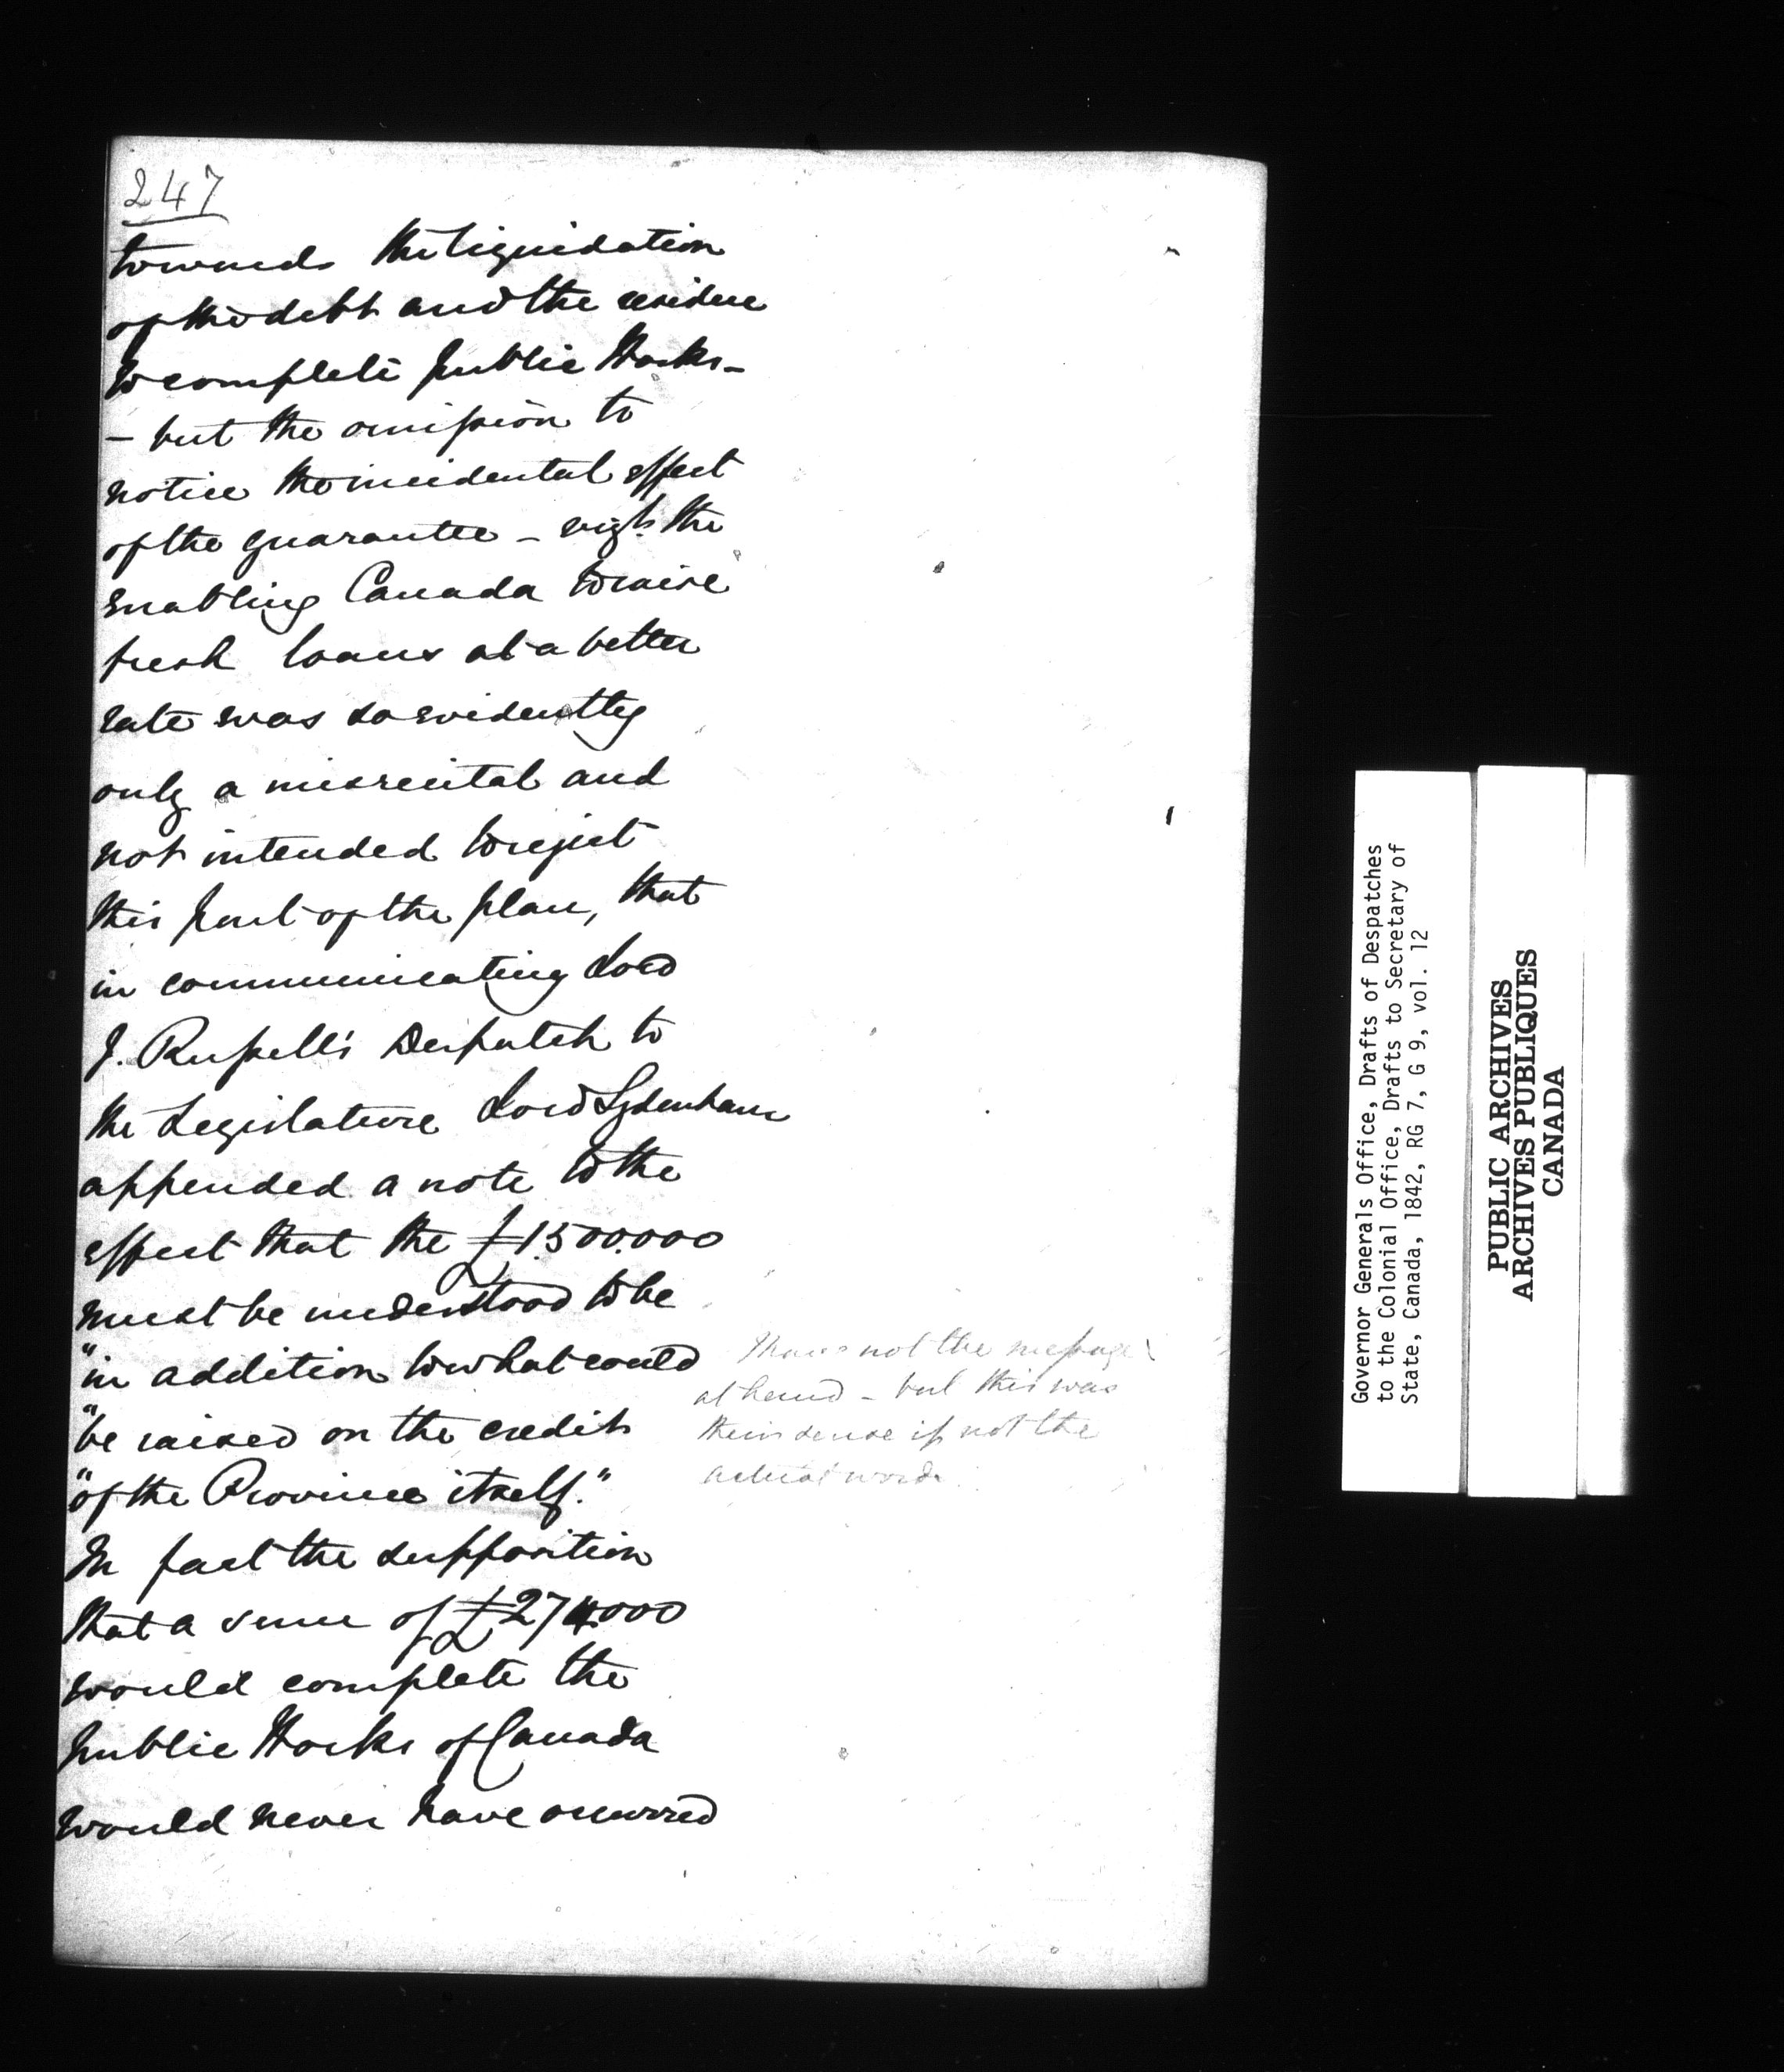 247
towards the liquidation
of the debt and the residue
to complete public Works -
- but the omission to
notice the incidental effect
of the guarantee - vizt. the
enabling Canada to raise
fresh loans at a better
rate was so evidently
only a misrecital and
not intended to reject
this part of the plan, that
in communicating Lord
J. Russell's Despatch to
the Legislature Lord Sydenham
appended a note to the
effect that the £1.500.000
must be understood to be
"in addition to what could
"be raised on the credit
"of the Province itself."
I have not the message
at hand - but this was
their sense if not the
actual words
In fact the supposition
that a sum of £274.000
would complete the
public Works of Canada
would never have occurred
Governor Generals Office, Drafts of Despatches
to the Colonial Office, Drafts to Secretary of
State, Canada, 1842, RG 7, G 9, vol. 12
PUBLIC ARCHIVES
ARCHIVES PUBLIQUES
CANADA